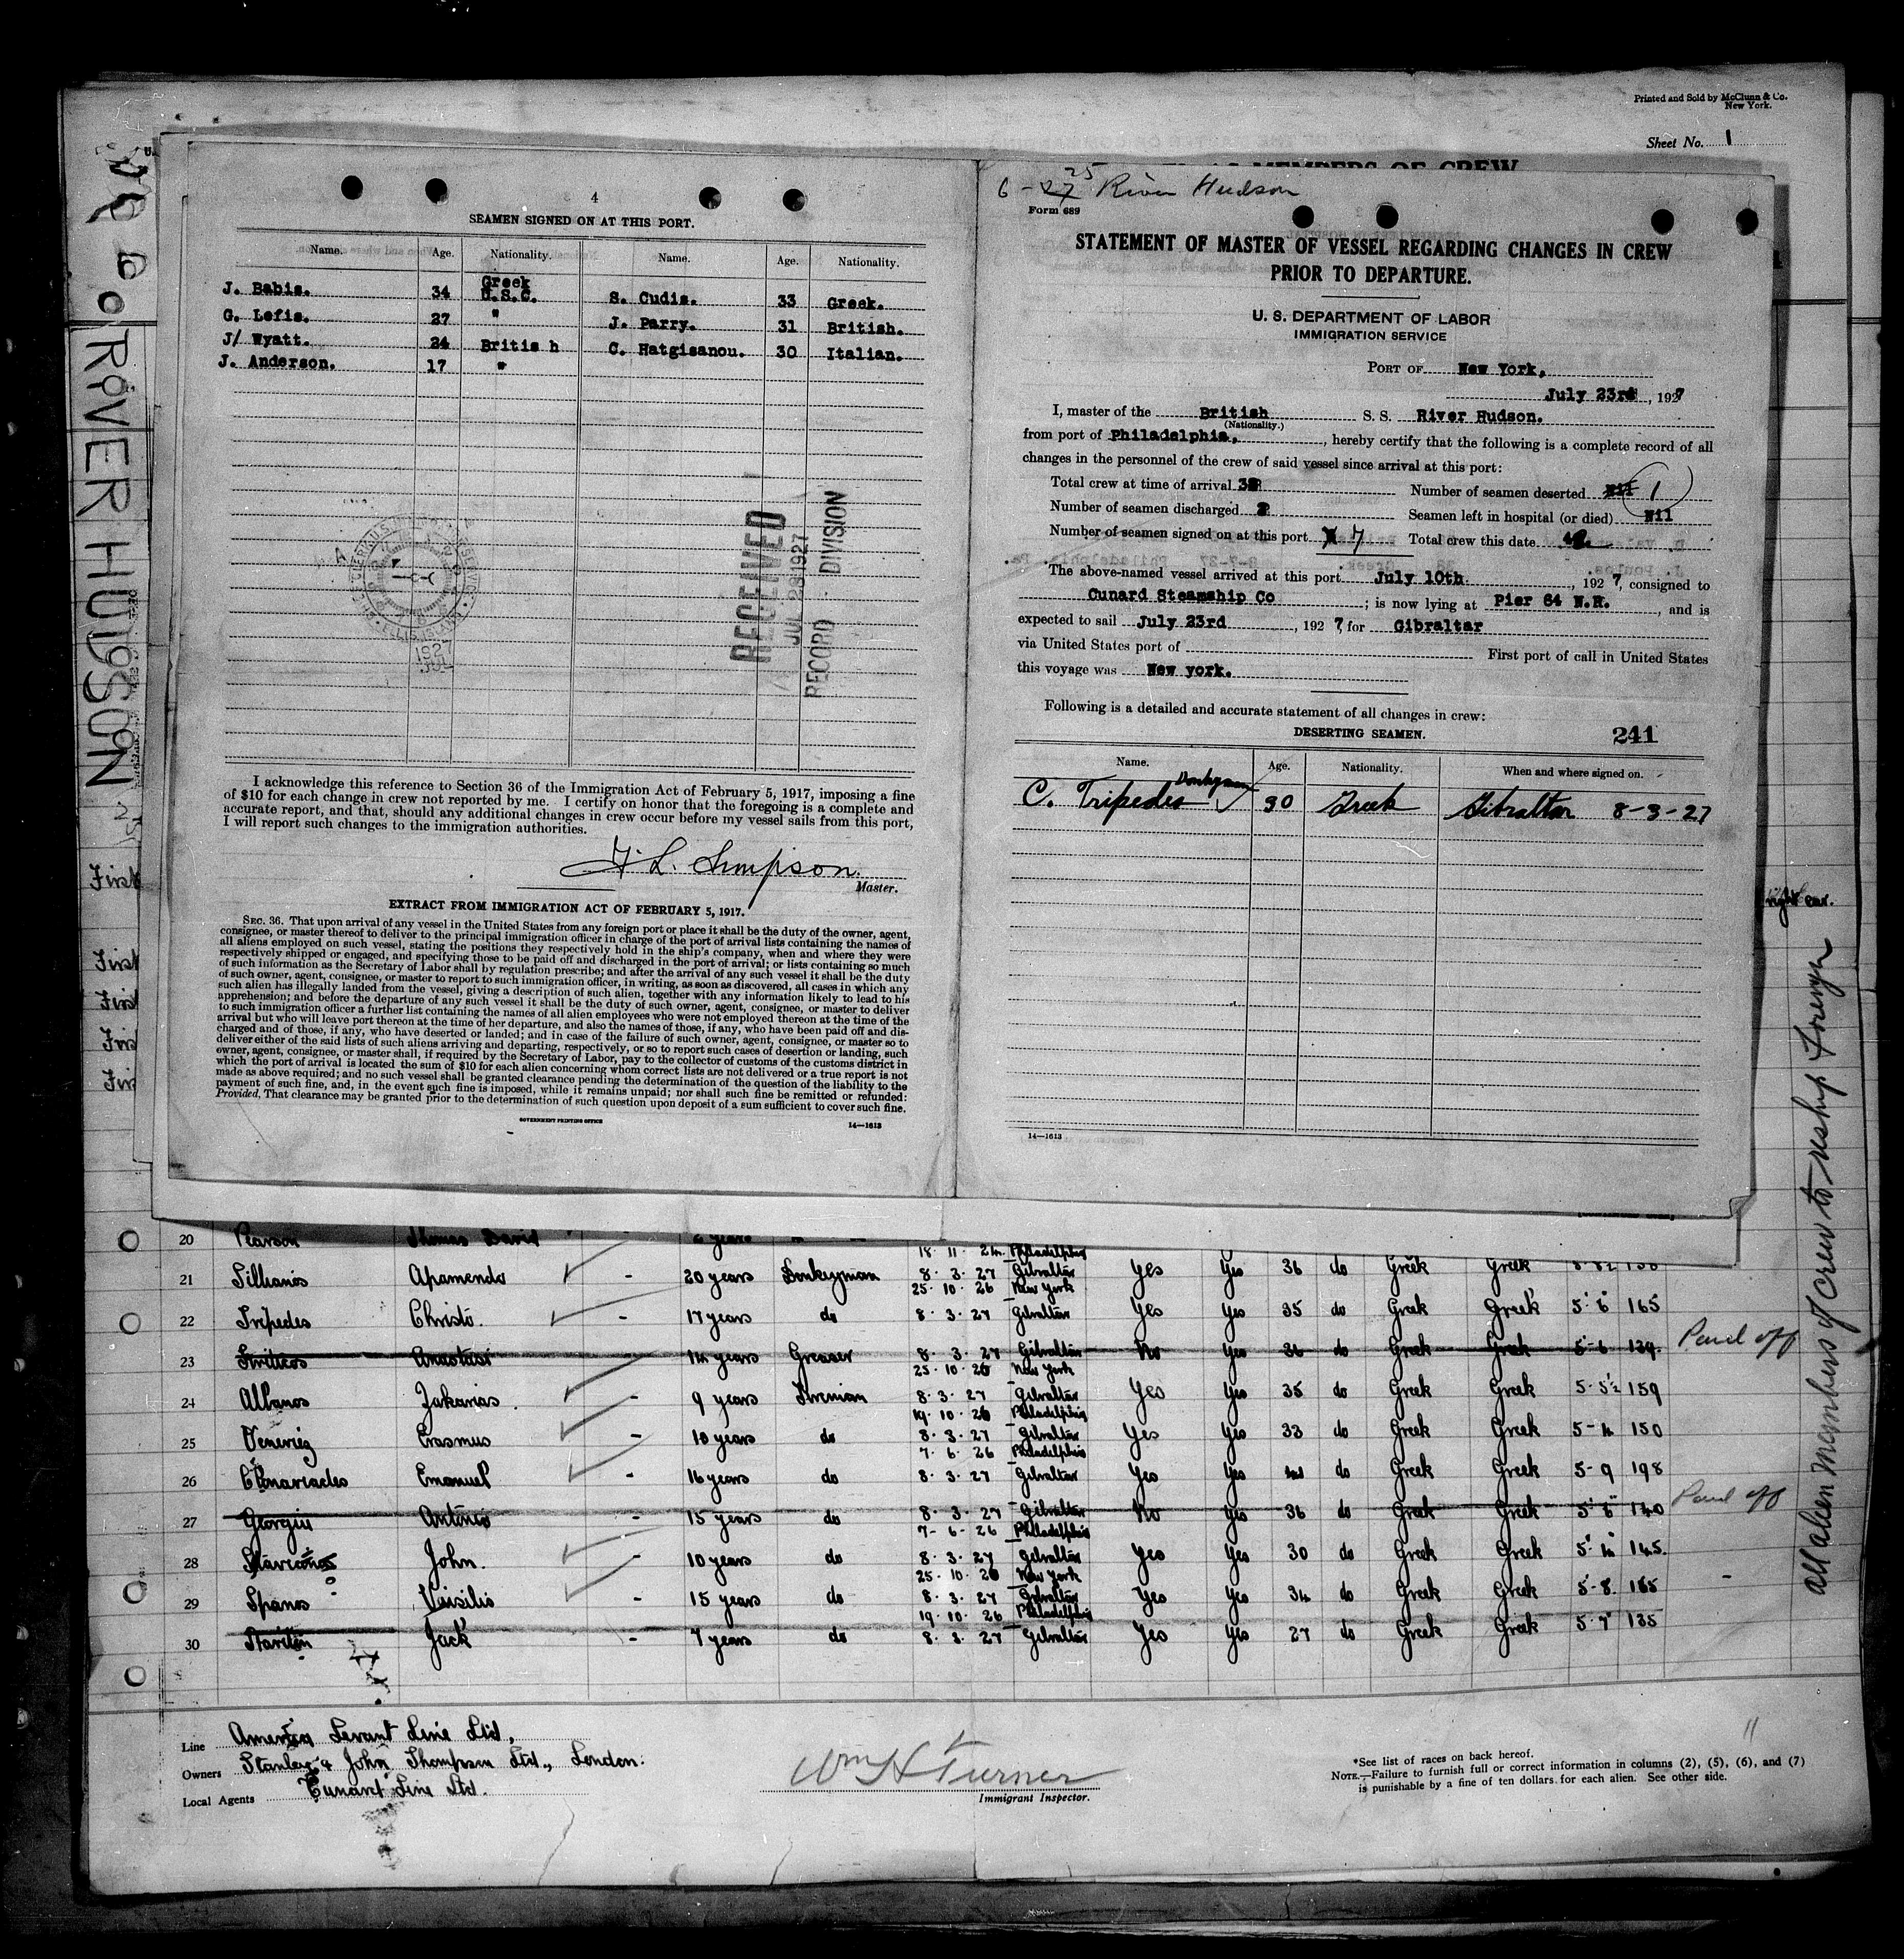 Printed and Sold by McClunn & Co.
New York.
Sheet No. 1
MEMBERS OF CREW
RIVER HUDSON
4
SEAMEN SIGNED ON AT THIS PORT.
Name. Age. Nationality. Name. Age. Nationality.
J. Babis. 34 Greek U.S.C. S. Cudis. 33 Greek.
G. Lefis. 27 " J. Parry. 31 British.
J/ Wyatt. 24 Britis h C. Hatgisanou. 30 Italian.
J. Anderson. 17 "
RECEIVED
JUL 28 1927
RECORD DIVISION
1927
JUL
I acknowledge this reference to Section 36 of the Immigration Act of February 5, 1917, imposing a fine
of $10 for each change in crew not reported by me. I certify on honor that the foregoing is a complete and
accurate report, and that, should any additional changes in crew occur before my vessel sails from this port,
I will report such changes to the immigration authorities.
L. Simpson.
Master.
EXTRACT FROM IMMIGRATION ACT OF FEBRUARY 5, 1917.
SEC. 36. That upon arrival of any vessel in the United States from any foreign port or place it shall be the duty of the owner, agent,
consignee, or master thereof to deliver to the principal immigration officer in charge of the port of arrival lists containing the names of
all aliens employed on such vessel, stating the positions they respectively hold in the ship's company, when and where they were
respectively shipped or engaged, and specifying those to be paid off and discharged in the port of arrival; or lists containing so much
of such information as the Secretary of Labor shall by regulation prescribe; and after the arrival of any such vessel it shall be the duty
of such owner, agent, consignee, or master to report to such immigration officer, in writing, as soon as discovered, all cases in which any
such alien has illegally landed from the vessel, giving a description of such alien, together with any information likely to lead to his
apprehension; and before the departure of any such vessel it shall be the duty of such owner, agent, consignee, or master to deliver
to such immigration officer a further list containing the names of all alien employees who were not employed thereon at the time of the
arrival but who will leave port thereon at the time of her departure, and also the names of those, if any, who have been paid off and dis-
charged and of those, if any, who have deserted or landed; and in case of the failure of such owner, agent, consignee, or master so to
deliver either of the said lists of such aliens arriving and departing, respectively, or so to report such cases of desertion or landing, such
owner, agent, consignee, or master shall, if required by the Secretary of Labor, pay to the collector of customs of the customs district in
which the port of arrival is located the sum of $10 for each alien concerning whom correct lists are not delivered or a true report is not
made as above required; and no such vessel shall be granted clearance pending the determination of the question of the liability to the
payment of such fine, and, in the event such fine is imposed, while it remains unpaid; nor shall such fine be remitted or refunded:
Provided, That clearance may be granted prior to the determination of such question upon deposit of a sum sufficient to cover such fine.
GOVERNMENT PRINTING OFFICE 14—1613
6 - 27 25 River Hudson
Form 689
STATEMENT OF MASTER OF VESSEL REGARDING CHANGES IN CREW
PRIOR TO DEPARTURE.
U. S. DEPARTMENT OF LABOR
IMMIGRATION SERVICE
PORT OF New York,
July 23rd, 1927
I, master of the British S. S. River Hudson.
(Nationality.)
from port of Philadelphia, , hereby certify that the following is a complete record of all
changes in the personnel of the crew of said vessel since arrival at this port:
Total crew at time of arrival Number of seamen deserted Nil 1
Number of seamen discharged Seamen left in hospital (or died) Nil
Number of seamen signed on at this port 7 Total crew this date
The above-named vessel arrived at this port July 10th, 1927, consigned to
Cunard Steamship Co; is now lying at Pier 64 N.R., and is
expected to sail July 23rd, 1927, for Gibraltar
via United States port of First port of call in United States
this voyage was New york.
Following is a detailed and accurate statement of all changes in crew:
DESERTING SEAMEN. 241
Name. Age. Nationality. When and where signed on.
C. Tripedes Donkeyman 30 Greek Gibraltar 8-3-27
14—1613
First
First
First
right ear.
All alien members of crew to reship foreign
20 Pearson Thomas David 2 years
18. 11. 24. Philadelphia
21 Sillianos Apamendo - 20 years Donkeyman 8. 3. 27 Gibraltar Yes Yes 36 do Greek Greek
25. 10. 26 New York
22 Tripedes Christo. - 17 years do 8. 3. 27 Gibraltar Yes Yes 35 do Greek Greek 5' 6" 165
23 Anastasi 14 years Greaser 8. 3. 27 Gibraltar No Yes 36 do Greek Greek 5-6 139. Paid off
25. 10. 26 New York
24 Albanos Zakarias. 9 years Fireman 8. 3. 27 Gibraltar Yes Yes 35 do Greek Greek 5-5½ 159
19. 10. 26 Philadelphia
25 Veneriez Erasmus - 10 years do 8. 3. 27 Gibraltar Yes Yes 33 do Greek Greek 5-4 150
7. 6. 26 Philadelphia
26 Emanuel - 16 years do 8. 3. 27 Gibraltar Yes Yes do Greek Greek 5-9 198
27 Georgiu Antonio - 15 years do 8. 3. 27 Gibraltar No Yes 36 do Greek Greek 5' 6" 140 Paid off
7- 6. 26 Philadelphia
28 John. - 10 years do 8. 3. 27 Gibraltar Yes Yes 30 do Greek Greek 5' 4" 145.
25. 10. 26 New York
29 Spanos Vasilio - 15 years do 8. 3. 27 Gibraltar Yes Yes 34 do Greek Greek 5-8. 165
19. 10. 26 Philadelphia
30 Jack - 7 years do 8. 3. 27 Gibraltar Yes Yes 27 do Greek Greek 5-7 135
Line American Levant Line Ltd,
Owners Stanley & John Thompson Ltd., London.
Local Agents Cunard Line Ltd.
Wm H Turner
Immigrant Inspector.
11
*See list of races on back hereof.
NOTE.—Failure to furnish full or correct information in columns (2), (5), (6), and (7)
is punishable by a fine of ten dollars for each alien. See other side.